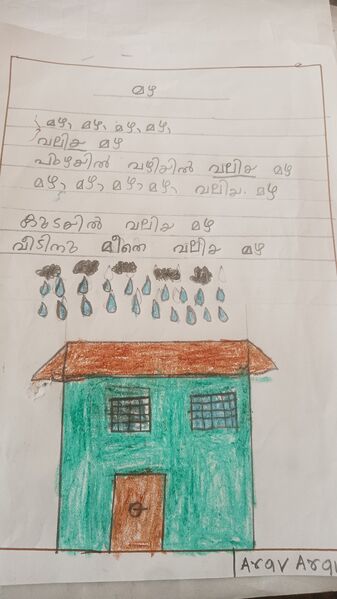 മഴ
മഴ, മഴ, മഴ, മഴ,
വലിയ മഴ
പുഴയിൽ വഴിയിൽ വലിയ മഴ
മഴ, മഴ, മഴ, മഴ, വലിയ മഴ
കുടയിൽ വലിയ മഴ
വീടിനു മീതെ വലിയ മഴ
Arav Arav